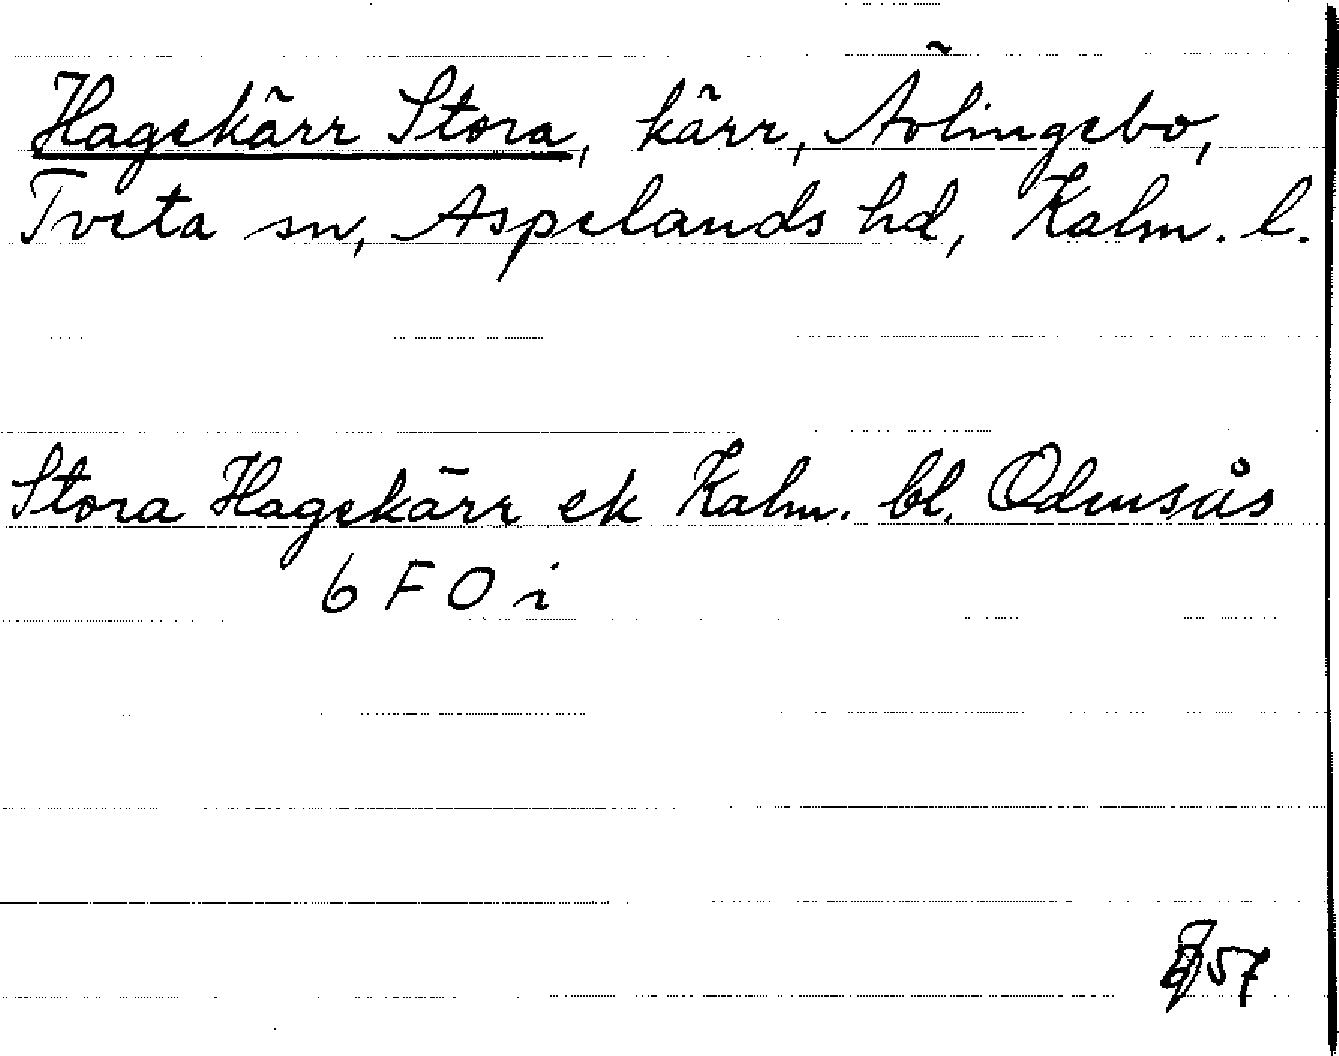 Hagekärr Stora, kärr, Ävlingebo,
Tveta sn, Aspelands hd, Kalm. l.
Stora Hagekärr ek Kalm. bl. Odensås
6 F 0 i
57